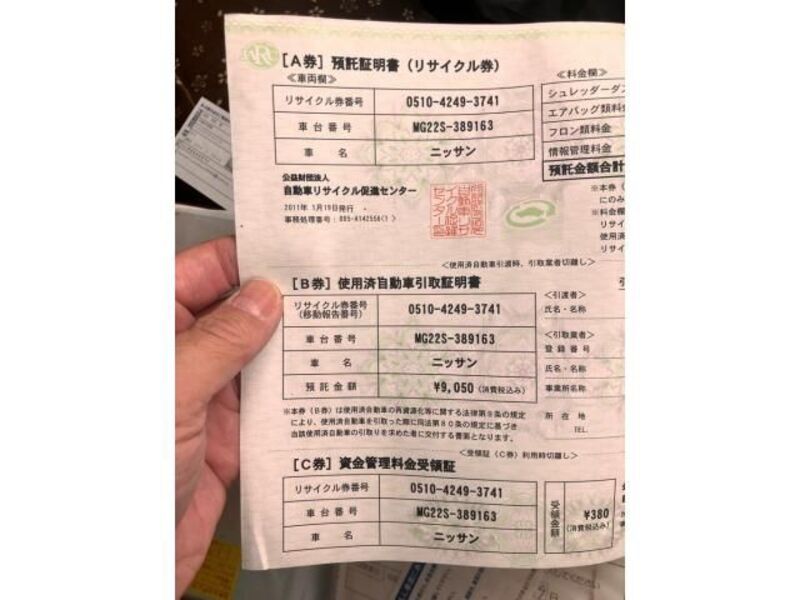 [A券] 預託証明書(リサイクル券)
≪車両欄≫
リサイクル券番号 0510-4249-3741
車台番号 MG22S-389163
車名 ニッサン
≪料金欄≫
シュレッダーダス
エアバッグ類料金
フロン類料金
情報管理料金
預託金額合計
公益財団法人
自動車リサイクル促進センター
2011年 1月19日発行
※本券(
にのみ
※料金欄
リサイ
使用済
リサイ
<使用済自動車引渡時、引取業者切離し>
[B券] 使用済自動車引取証明書
リサイクル券番号
(移動報告番号) 0510-4249-3741
車台番号 MG22S-389163
車名 ニッサン
預託金額 ¥9,050(消費税込み)
<引渡者>
氏名・名称
<引取業者>
登録番号
氏名・名称
事業所名称
所在地
TEL.
※本券(B券)は使用済自動車の再資源化等に関する法律第9条の規定
により、使用済自動車を引取った際に同法第80条の規定に基づき
当該使用済自動車の引取りを求めた者に交付する書面となります。
<受領証(C券)利用時切離し>
[C券] 資金管理料金受領証
リサイクル券番号 0510-4249-3741
車台番号 MG22S-389163
車名 ニッサン
受領金額 ¥380
(消費税込み)